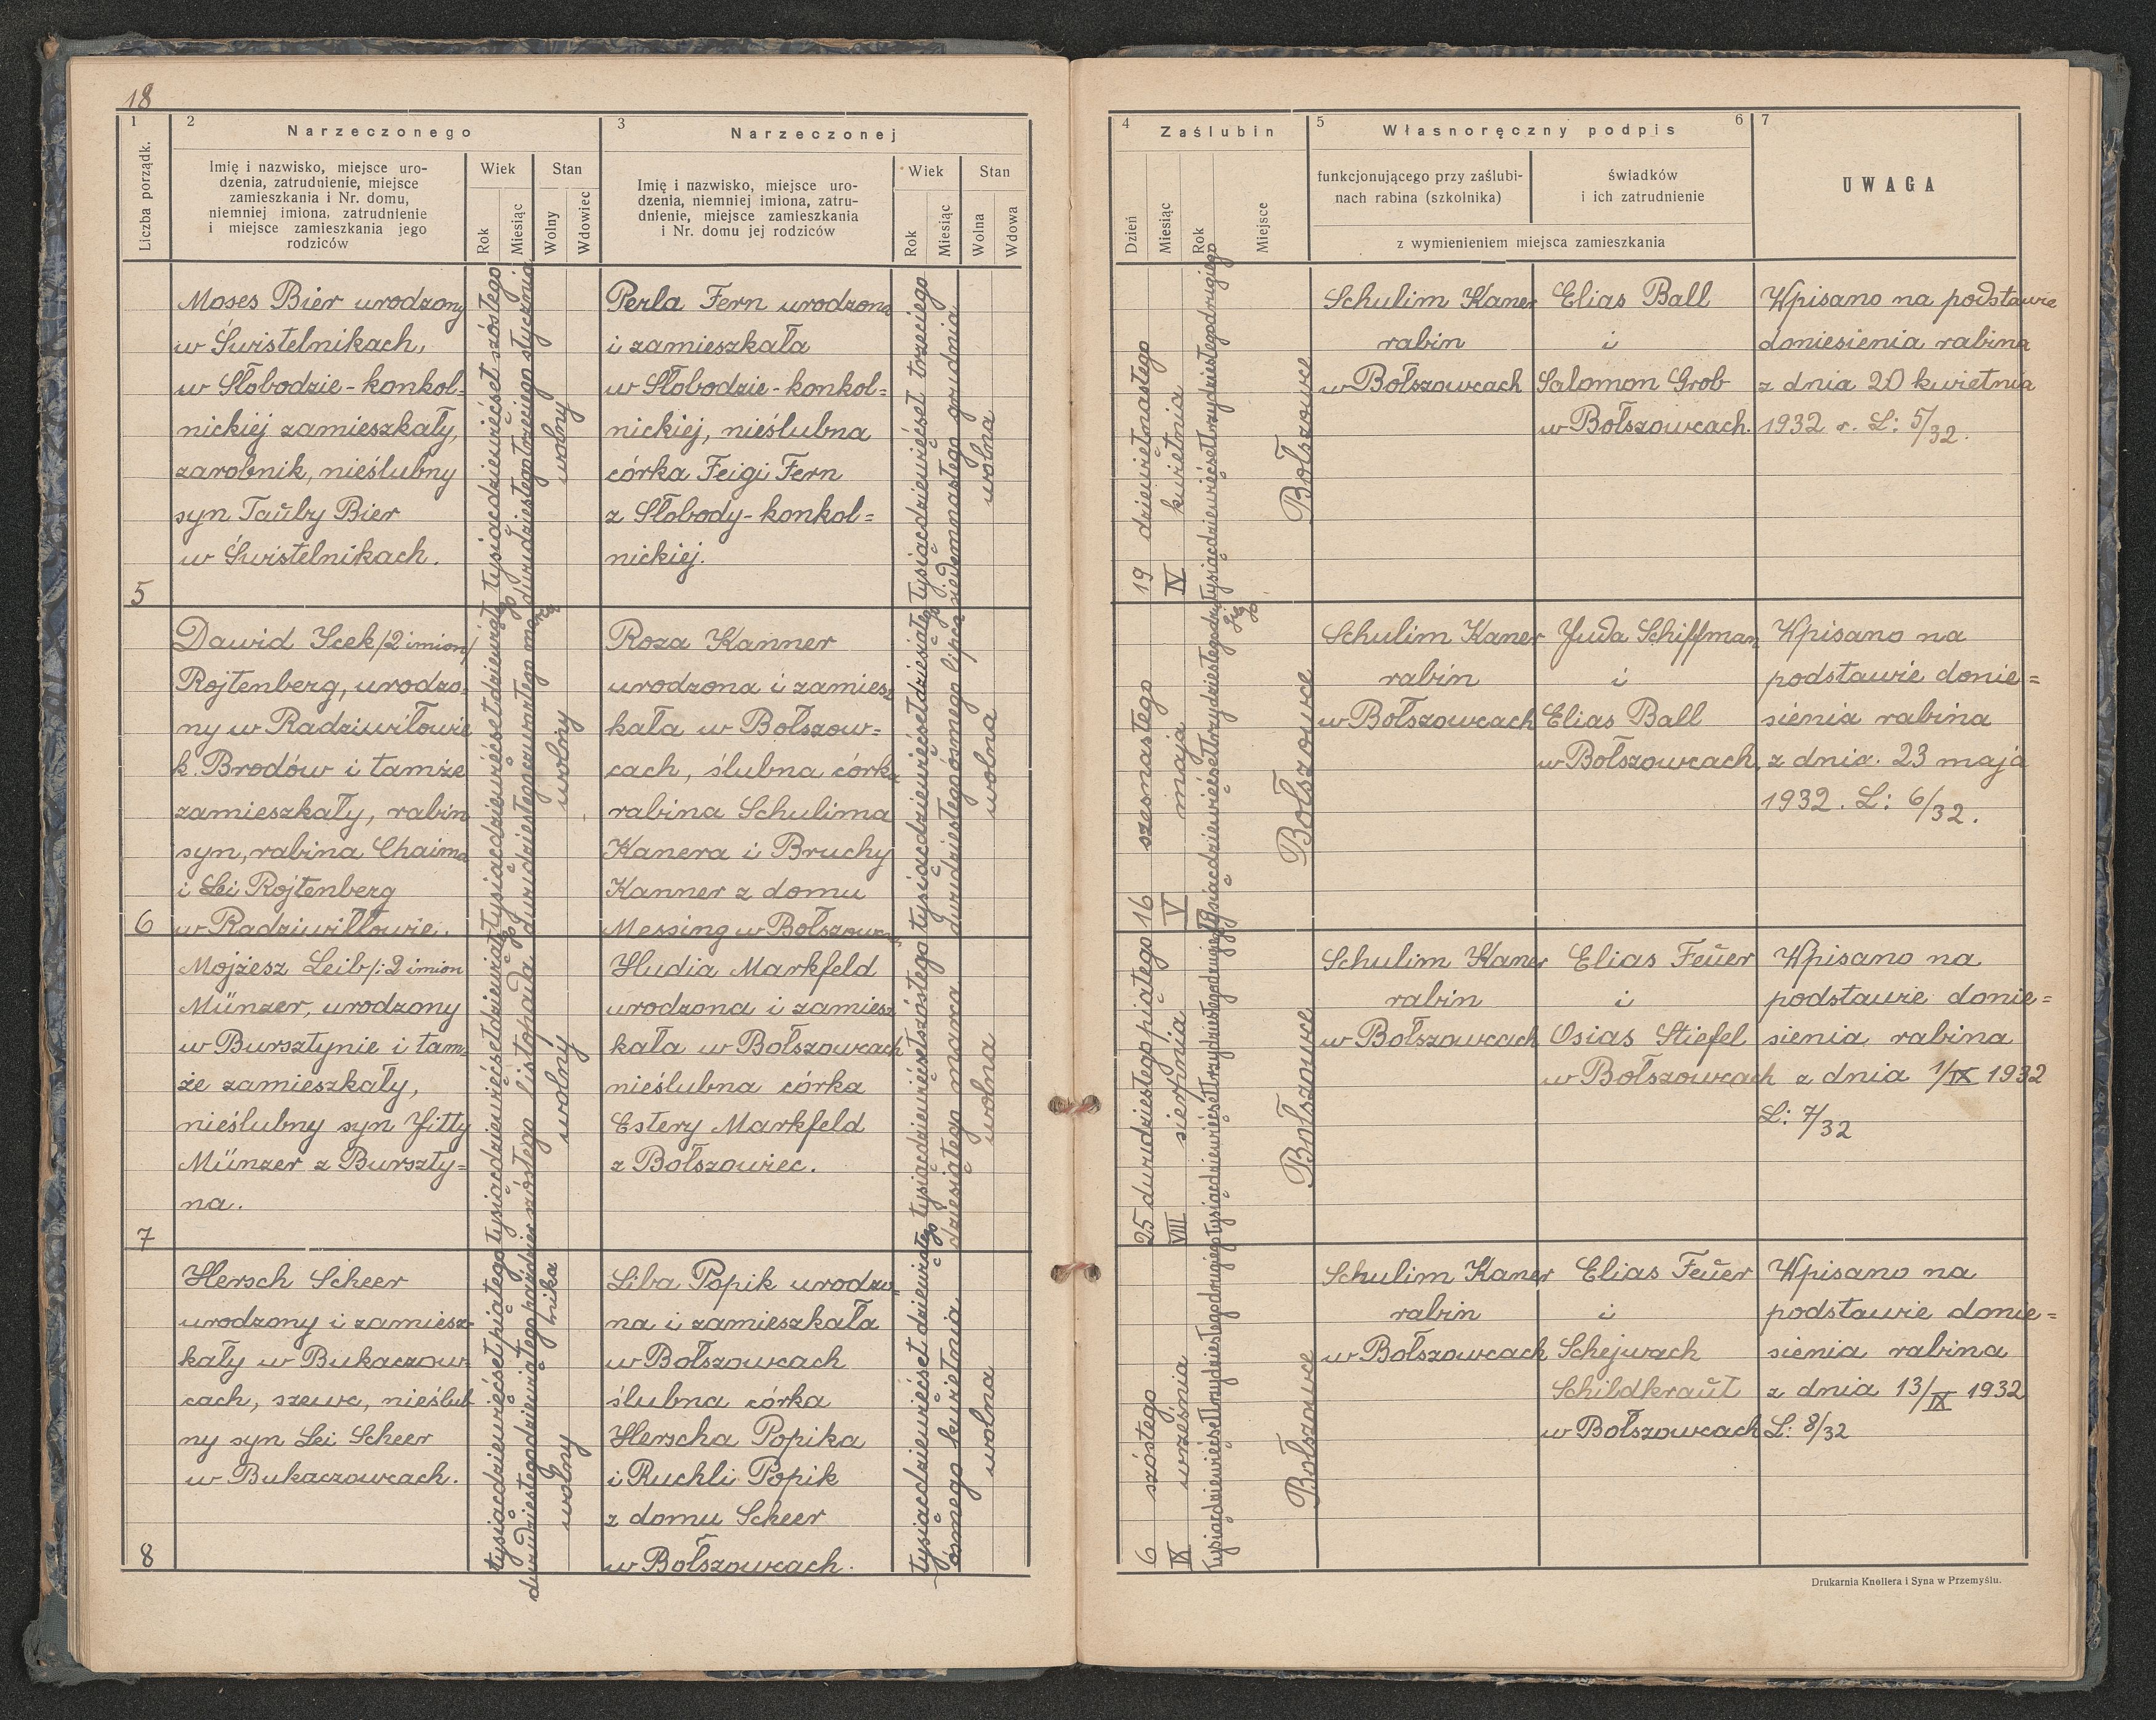 18
1
2
Narzeczonego
3
Narzeczonej
Liczba porządk.
Imię i nazwisko, miejsce uro-
dzenia, zatrudnienie, miejsce
zamieszkania i Nr. domu,
niemniej imiona, zatrudnienie
i miejsce zamieszkania jego
rodziców
Wiek
Stan
Rok
Miesiąc
Wolny
Wdowiec
Imię i nazwisko, miejsce uro-
dzenia, niemniej imiona, zatru-
dnienie, miejsce zamieszkania
i Nr. domu jej rodziców
Wiek
Stan
Rok
Miesiąc
Wolna
Wdowa
Moses Bier urodzony
w Świstelnikach,
w Słobodzie-konkol-
nickiej zamieszkały,
zarobnik, nieślubny
syn Taŭby Bier
w Świstelnikach.
5
tysiącdziewięćset szóstego
dwudziestegotrzeciego stycznia
wolny
Perla Fern urodzona
i zamieszkała
w Słobodzie-konkol=
nickiej, nieślubna
córka Feigi Fern
z Słobody-konkol=
nickiej.
tysiącdziewięćset trzeciego
siedemnastego grudnia
wolna
Dawid Icek /2 imion/
Rojtenberg, urodzo-
ny w Radziwiłowie
k. Brodów i tamże
zamieszkały, rabin
syn, rabina Chaima
i Lei Rojtenberg
6
w Radziwiłłowie.
tysiącdziewięćsetdziewiątego
dwudziestegoczwartego marca
wolny
Roza Kanner
urodzona i zamiesz
kała w Bołszow=
cach, ślubna córka
rabina Schulima
Kanera i Bruchy
Kanner z domu
Messing w Bołszowcach
tysiącdziewięćsetdziesiątego
dwudziestegoósmego lipca
wolna
Mojżesz Leib/:2 imion
Münzer, urodzony
w Bursztynie i tam-
że zamieszkały,
nieślubny syn Yitty
Münzer z Burszty=
na.
7
tysiącdziewięćsetdziewiątego
szóstego listopada
wolny
Hudia Markfeld
urodzona i zamiesz
kała w Bołszowcach
nieślubna córka
Estery Markfeld
z Bołszowiec.
tysiącdziewięćsetszóstego
dziesiątego marca
wolna
Hersch Scheer
urodzony i zamiesz-
kały w Bukaczow-
cach, szewc, nieślub
ny syn Lei Scheer
w Bukaczowcach.
8
tysiącdziewięćsetpiątego
dwudziestegodziewiątego paździer
nika
wolny
Liba Popik urodzo-
na i zamieszkała
w Bołszowcach
ślubna córka
Herscha Popika
i Ruchli Popik
z domu Scheer
w Bołszowcach.
tysiącdziewięćset dziewiątego
ósmego kwietnia
wolna
4
Zaślubin
5
Własnoręczny podpis
6
7
Dzień
Miesiąc
Rok
Miejsce
funkcjonującego przy zaślubi-
nach rabina (szkolnika)
świadków
i ich zatrudnienie
z wymienieniem miejsca zamieszkania
UWAGA
19 dziewiętnastego
IV kwietnia
tysiącdziewięćsettrzydziestegodrugiego
Bołszowce
Schulim Kaner
rabin
w Bołszowcach
Elias Ball
i
Salomon Grob
w Bołszowcach.
Wpisano na podstawie
doniesienia rabina
z dnia 20 kwietnia
1932 r. L: 5/32.
16 szesnastego
V maja
tysiącdziewięćsettrzydziestegodru
giego
Bołszowce
Schulim Kaner
rabin
w Bołszowcach
Juda Schiffman
i
Elias Ball
w Bołszowcach,
Wpisano na
podstawie donie=
sienia rabina
z dnia. 23 maja
1932. L: 6/32.
25 dwudziestegopiątego
VIII sierpnia
tysiącdziewięćsettrzydziestegodrugiego
Bołszowce
Schulim Kaner
rabin
w Bołszowcach
Elias Feŭer
i
Osias Stiefel
w Bołszowcach
Wpisano na
podstawie donie=
sienia rabina
z dnia 1/IX 1932
L: 7/32
6 szóstego
IX września
Tysiącdziewięćsettrzydziestegodrugiego
Bołszowce
Schulim Kaner
rabin
w Bołszowcach
Elias Feŭer
i
Schejwach
Schildkraŭt
w Bołszowcach
Wpisano na
podstawie donie=
sienia rabina
z dnia 13/IX 1932
L: 8/32
Drukarnia Knollera i Syna w Przemyślu.